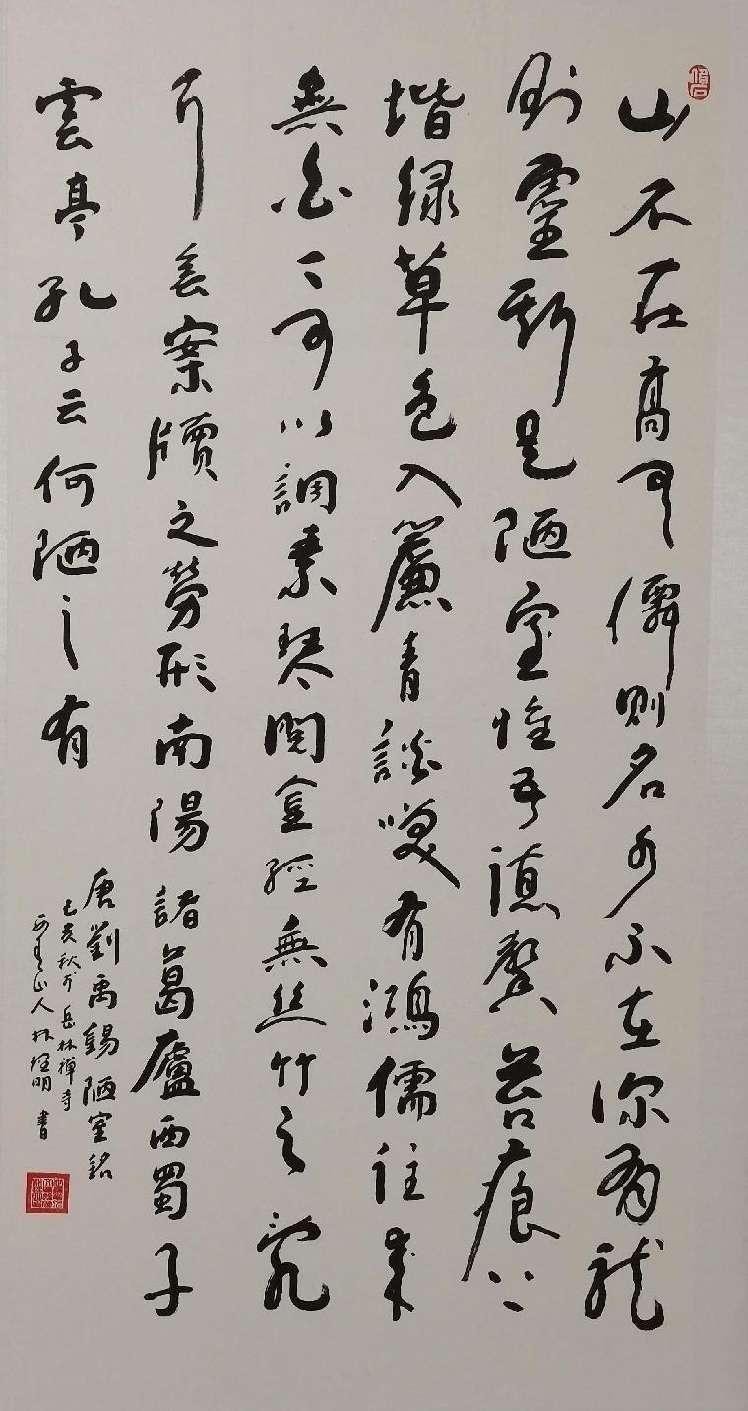 山不在高有僊則名水不在深有龍
則靈斯是陋室惟吾德馨苔痕上
堦緑草色入簾青談笑有鴻儒往来
無白丁可以調素琴閱金經無丝竹之亂
耳無案牘之勞形南陽諸葛廬西蜀子
雲亭孔子云何陋之有
唐劉禹錫陋室銘
己亥秋於岳林禪寺
山人林明書